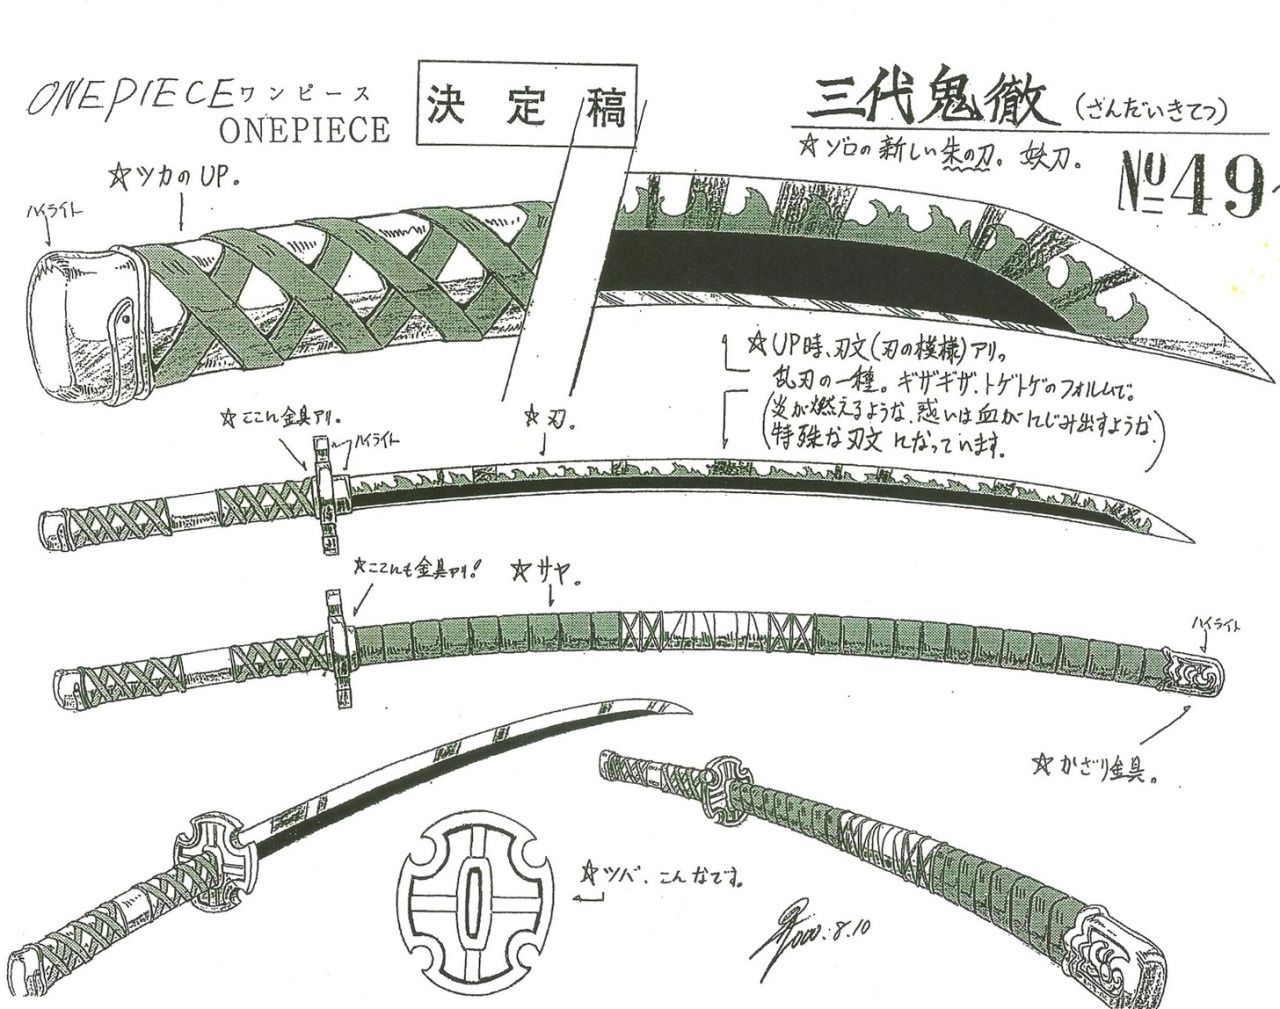 ONEPIECE ワンピース
ONEPIECE
決定稿
三代鬼徹(ざんだいきてつ)
☆ゾロの新しい朱の刀。妖刀。
№49
☆ツカのUP。
ハイライト
☆UP時、刃文(刃の模様)アリ。
乱刃の一種。ギザギザ、トゲトゲのフォルムで。
(炎が燃えるような、惑いは血がにじみ出すような、
特殊な刃文になっています。)
☆ここに金具アリ。
ハイライト
☆刃。
☆ここにも金具アリ!
☆サヤ。
ハイライト
☆かざり金具。
☆ツバ、こんなです。
2000.8.10